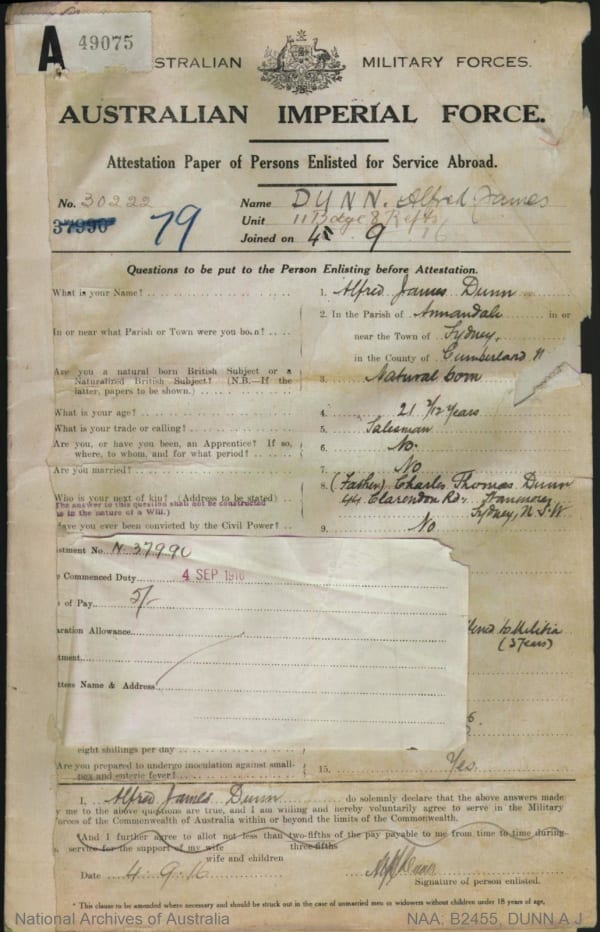 A 49075
STRALIAN MILITARY FORCES.
AUSTRALIAN IMPERIAL FORCE.
Attestation Paper of Persons Enlisted for Service Abroad.
No. 30222 Name DUNN. Alfred James
37990 79 Unit 11 Bdge 8 Refts
Joined on 4 9 16
Questions to be put to the Person Enlisting before Attestation.
What is your Name? 1. Alfred James Dunn
In or near what Parish or Town were you born? 2. In the Parish of Annandale in or
near the Town of Sydney,
in the County of Cumberland
Are you a natural born British Subject or a
Naturalized British Subject? (N.B.—If the
latter, papers to be shown.) 3. Natural born
What is your age? 4. 21 2/12 years
What is your trade or calling? 5. Salesman
Are you, or have you been, an Apprentice? If so,
where, to whom, and for what period? 6. No.
Are you married? 7. No
Who is your next of kin? (Address to be stated) 8. (Father) Charles Thomas Dunn
44 Clarendon Rd. Stanmore,
Sydney, N.S.W
The answer to this question shall not be constructed
as in the nature of a Will.)
Have you ever been convicted by the Civil Power? 9. No
istment No. N 37990
e Commenced Duty 4 SEP 1916
of Pay 5/-
aration Allowance
tment
ttees Name & Address
to Militia
(3 years)
6.
eight shillings per day
Are you prepared to undergo inoculation against small-
pox and enteric fever? 15. Yes.
I, Alfred James Dunn do solemnly declare that the above answers made
by me to the above questions are true, and I am willing and hereby voluntarily agree to serve in the Military
Forces of the Commonwealth of Australia within or beyond the limits of the Commonwealth.
*And I further agree to allot not less than two-fifths of the pay payable to me from time to time during
three-fifths
service for the support of my wife
wife and children
Date 4.9.16
Signature of person enlisted.
* This clause to be amended where necessary and should be struck out in case of unmarried men or widowers without children under 18 years of age.
National Archives of Australia NAA: B2455, DUNN A J